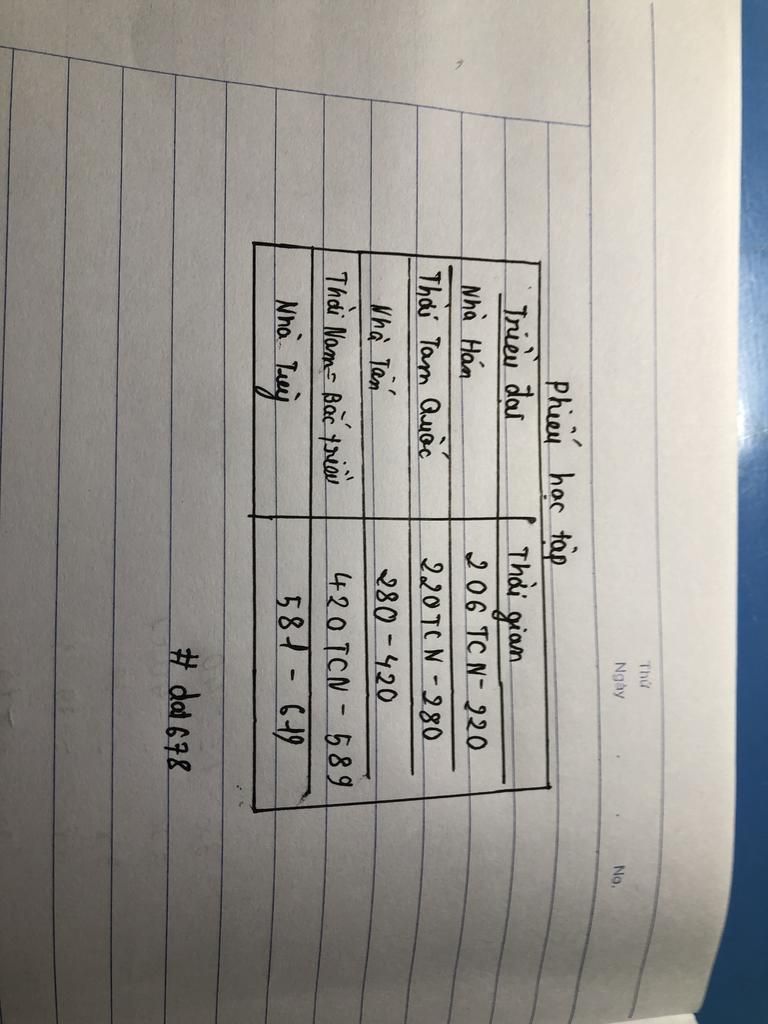 Thứ
Ngày . . No.
Phiếu học tập
Triều đại Thời gian
Nhà Hán 206 TCN - 220
Thời Tam Quốc 220 TCN - 280
Nhà Tấn 280 - 420
Thời Nam = Bắc triều 420 TCN - 589
Nhà Tuỳ 581 - 619
# dol678